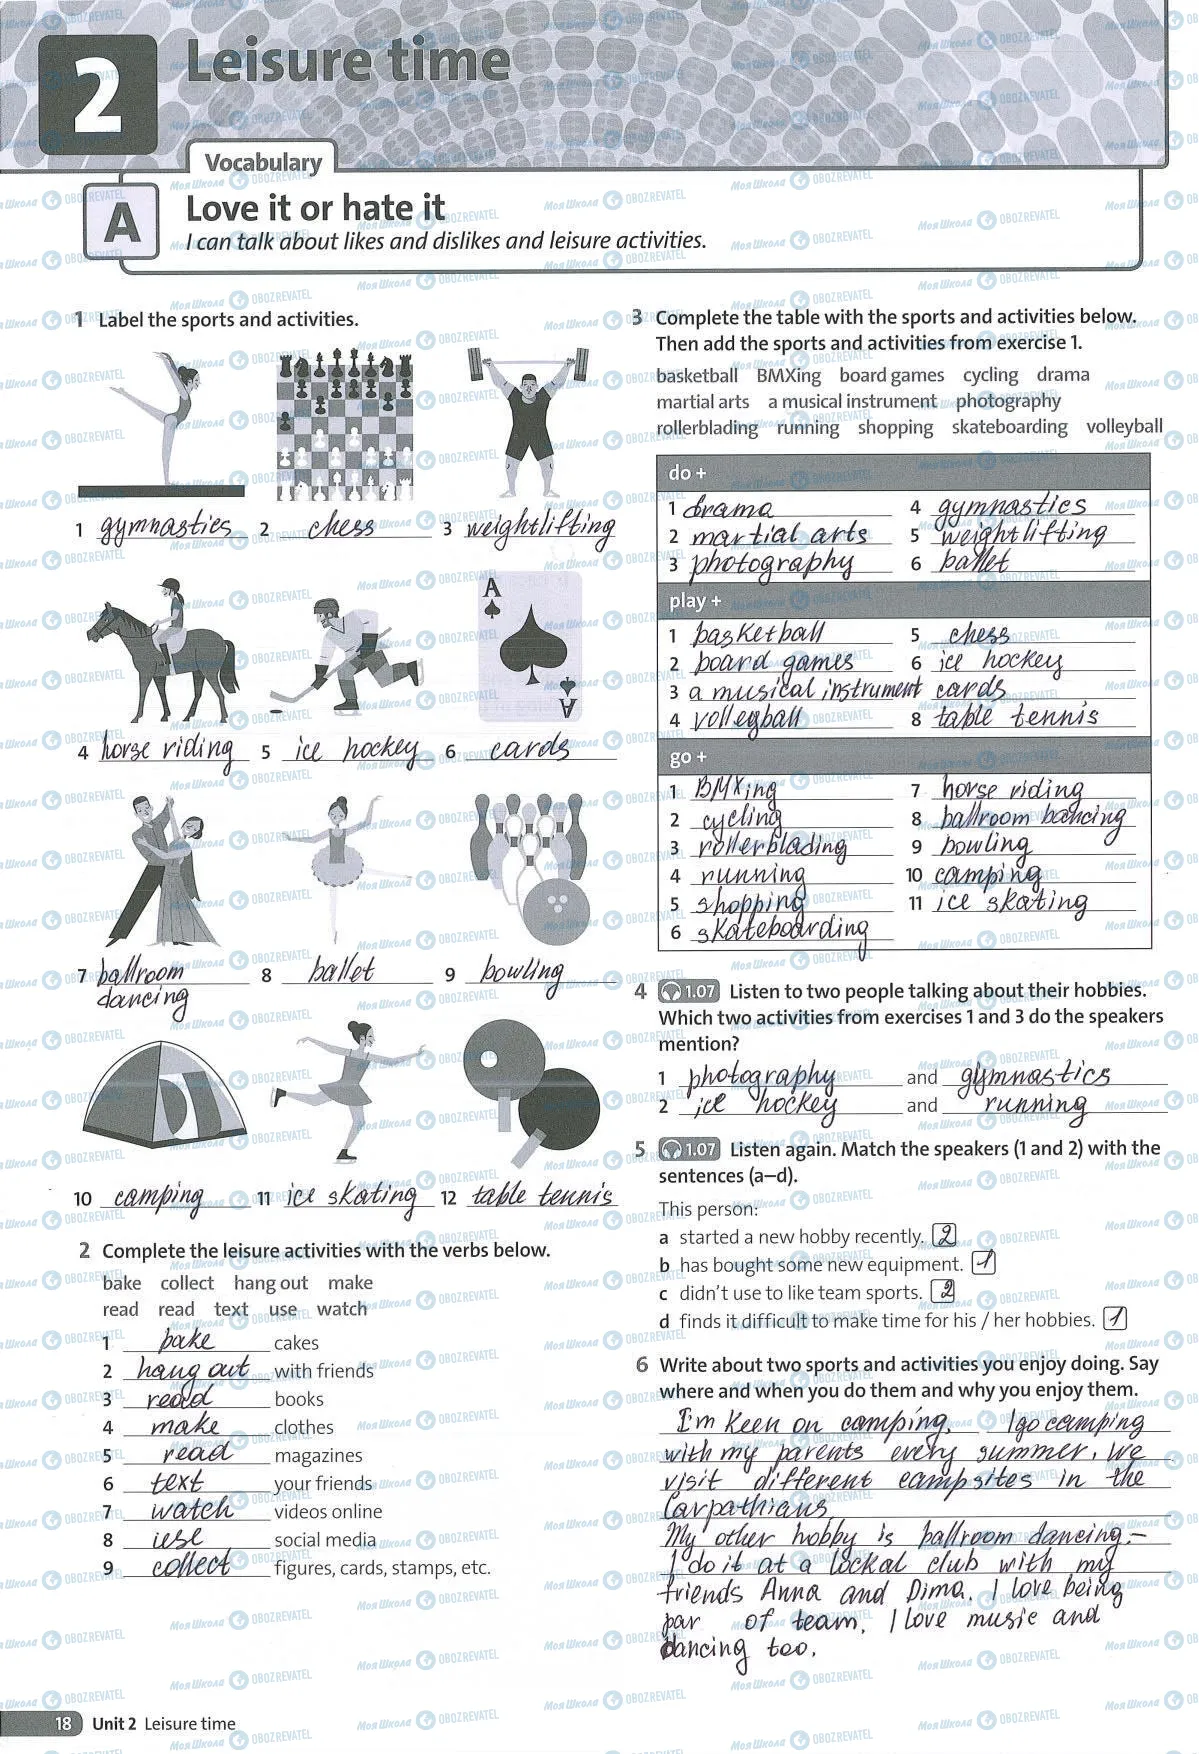 2
Leisure time
Vocabulary
A
Love it or hate it
I can talk about likes and dislikes and leisure activities.
1 Label the sports and activities.
1 gymnastics 2 chess 3 weightlifting
4 horse riding 5 ice hockey 6 cards
7 ballroom 8 ballet 9 bowling
dancing
10 camping 11 ice skating 12 table tennis
2 Complete the leisure activities with the verbs below.
bake collect hang out make
read read text use watch
1 bake cakes
2 hang out with friends
3 read books
4 make clothes
5 read magazines
6 text your friends
7 watch videos online
8 use social media
9 collect figures, cards, stamps, etc.
3 Complete the table with the sports and activities below.
Then add the sports and activities from exercise 1.
basketball BMXing board games cycling drama
martial arts a musical instrument photography
rollerblading running shopping skateboarding volleyball
do +
1 drama 4 gymnastics
2 martial arts 5 weightlifting
3 photography 6 ballet
play +
1 basketball 5 chess
2 board games 6 ice hockey
3 a musical instrument cards
4 volleyball 8 table tennis
go +
1 BMXing 7 horse riding
2 cycling 8 ballroom dancing
3 rollerblading 9 bowling
4 running 10 camping
5 shopping 11 ice skating
6 skateboarding
4 1.07 Listen to two people talking about their hobbies.
Which two activities from exercises 1 and 3 do the speakers
mention?
1 photography and gymnastics
2 ice hockey and running
5 1.07 Listen again. Match the speakers (1 and 2) with the
sentences (a–d).
This person:
a started a new hobby recently. 2
b has bought some new equipment. 1
c didn't use to like team sports. 2
d finds it difficult to make time for his / her hobbies. 1
6 Write about two sports and activities you enjoy doing. Say
where and when you do them and why you enjoy them.
I'm keen on camping. I go camping
with my parents every summer. We
visit different campsites in the
Carpathians.
My other hobby is ballroom dancing.–
I do it at a lockal club with my
friends Anna and Dima. I love being
par of team. I love music and
dancing too.
18 Unit 2 Leisure time
МояШкола OBOZREVATEL